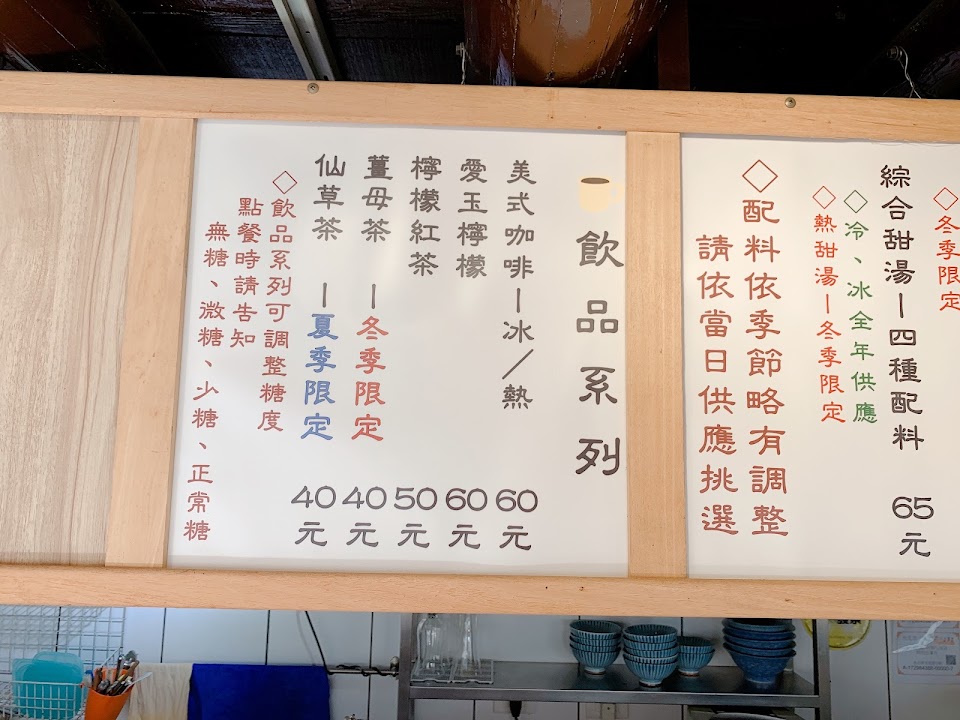 ◇冬季限定
綜合甜湯－四種配料 65元
◇冷、冰全年供應
◇熱甜湯－冬季限定
◇配料依季節略有調整
請依當日供應挑選
飲品系列
美式咖啡－冰／熱 60元
愛玉檸檬 60元
檸檬紅茶 50元
薑母茶 －冬季限定 40元
仙草茶 －夏季限定 40元
◇飲品系列可調整糖度
點餐時請告知
無糖、微糖、少糖、正常糖